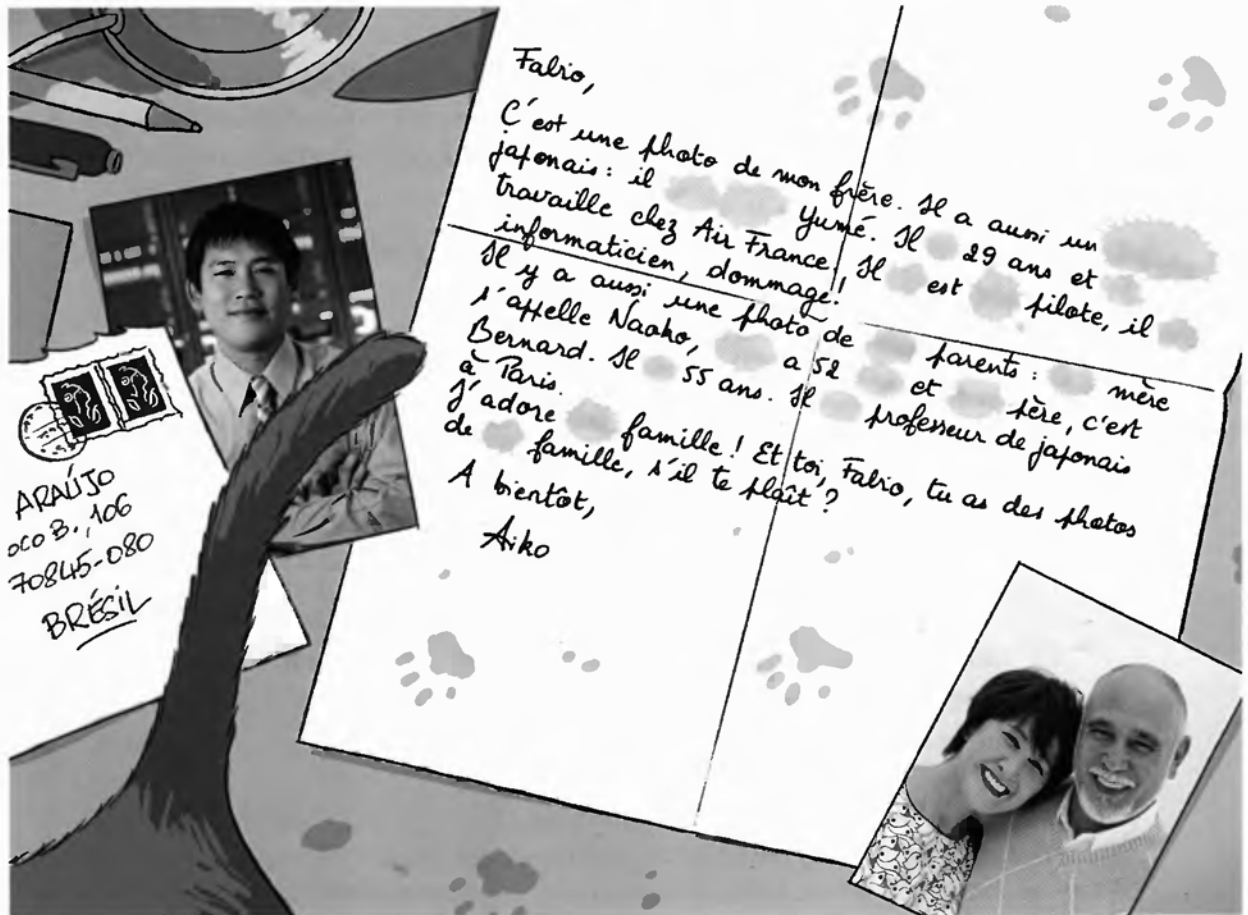 Fabio,
C'est une photo de mon frère. Il a aussi un
japonais : il Yumé. Il 29 ans et
travaille chez Air France. Il est pilote, il
informaticien, dommage!
Il y a aussi une photo de parents : mère
s'appelle Naoko, a 52 et père, c'est
Bernard. Il 55 ans. Il professeur de japonais
à Paris.
J'adore famille ! Et toi, Fabio, tu as des photos
de famille, s'il te plaît ?
A bientôt,
Aiko
ARAÚJO
oco B., 106
70845-080
BRÉSIL